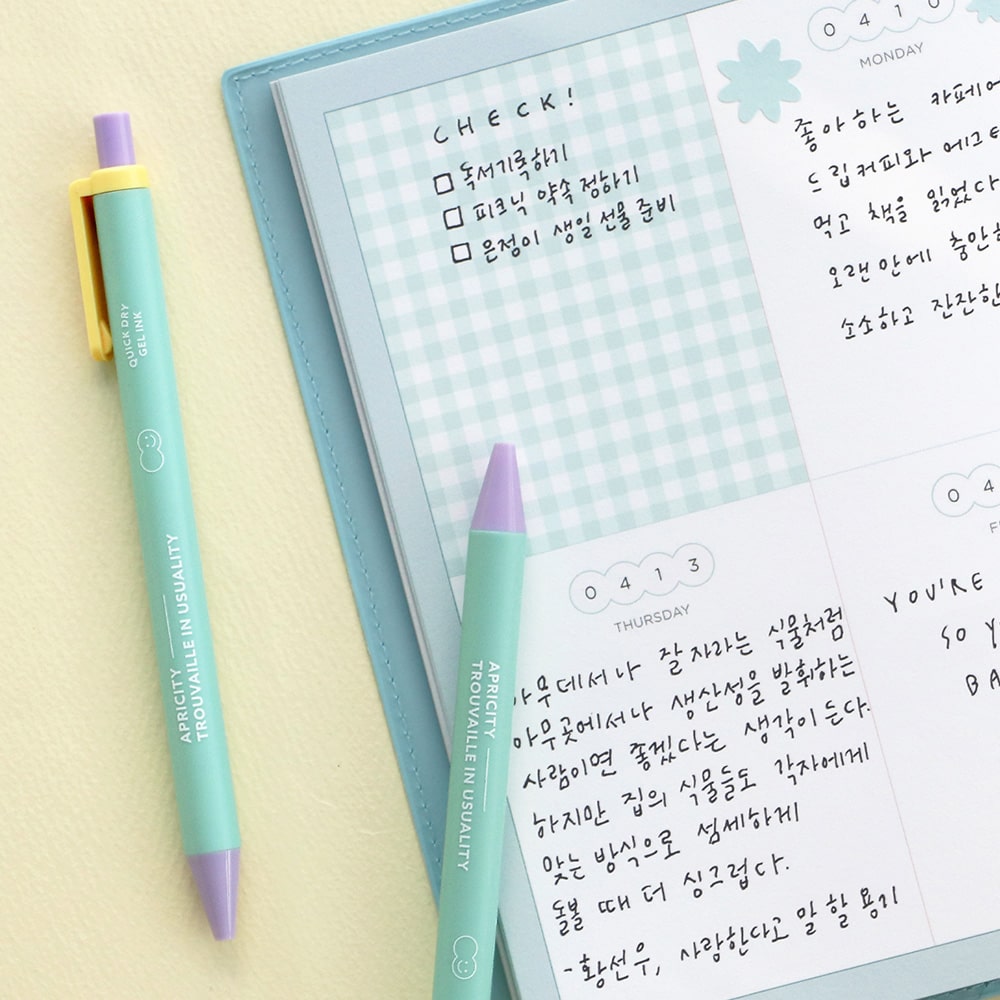 QUICK DRY
GEL INK
APRICITY
TROUVAILLE IN USUALITY
APRICITY
TROUVAILLE IN USUALITY
CHECK!
독서기록하기
피크닉 약속 정하기
은정이 생일 선물 준비
0410
MONDAY
좋아하는 카페에
드립커피와
먹고 책을 읽었다
오랜만에
소소하고 잔잔한
0413
THURSDAY
아무데서나 잘 자라는 식물처럼
아무곳에서나 생산성을 발휘하는
사람이면 좋겠다는 생각이 든다.
하지만 집의 식물들도 각자에게
맞는 방식으로 섬세하게
돌볼 때 더 싱그럽다.
-황선우, 사랑한다고 말 할 용기
04
YOU'RE
SO